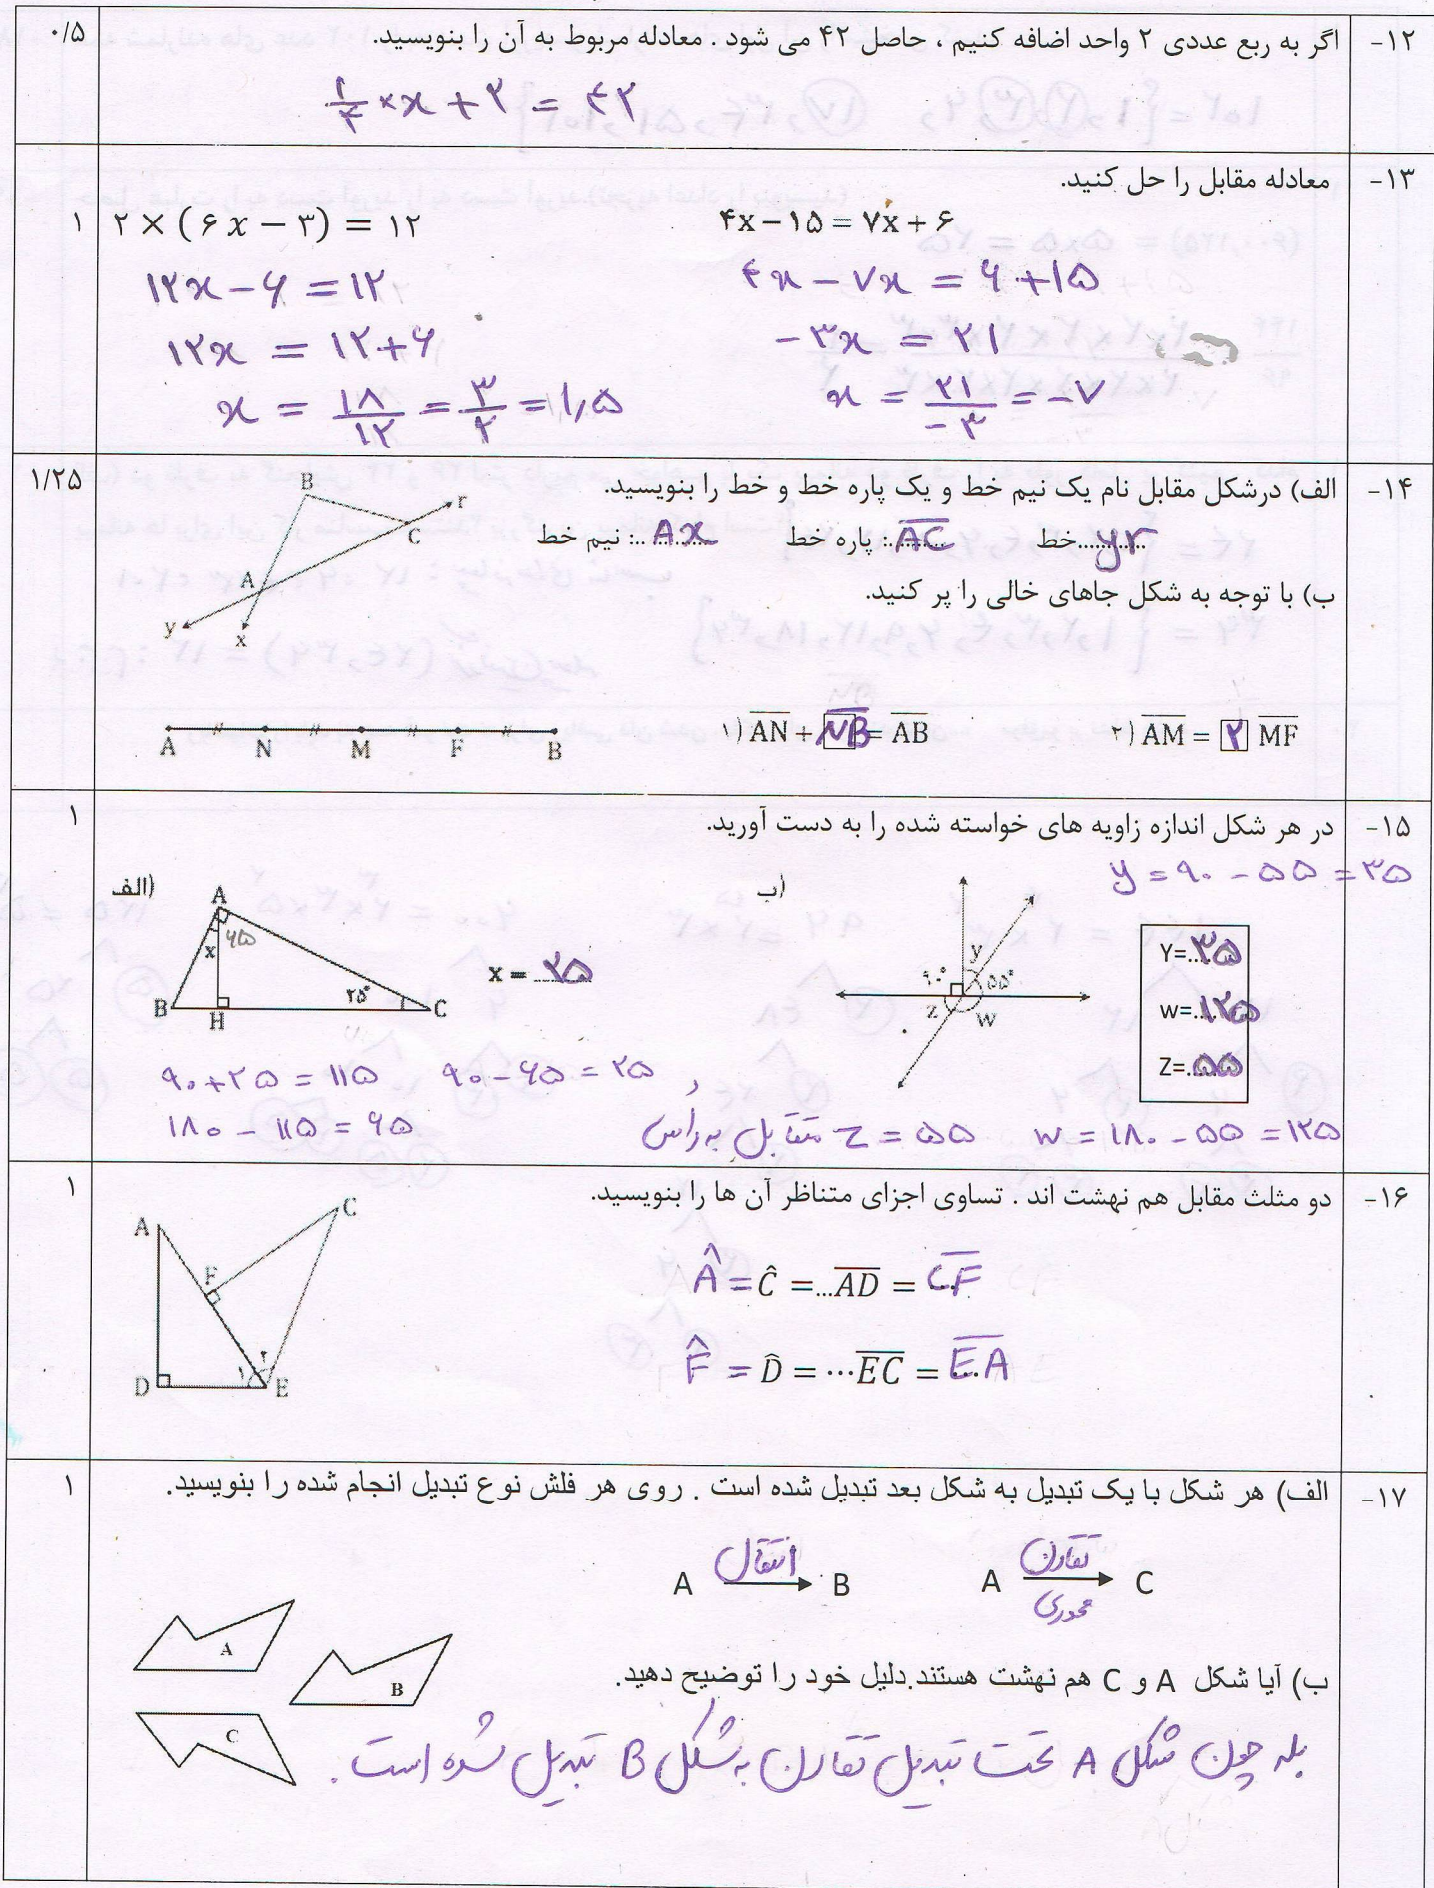 ۱۲- اگر به ربع عددی ۲ واحد اضافه کنیم ، حاصل ۴۲ می شود . معادله مربوط به آن را بنویسید. ۰/۵
۱/۴ × x + ۲ = ۴۲
۱۳- معادله مقابل را حل کنید. ۱
۲ × ( ۶ x − ۳) = ۱۲
۱۲x − ۶ = ۱۲
۱۲x = ۱۲+۶
x = ۱۸/۱۲ = ۳/۲ = ۱,۵
۴x − ۱۵ = ۷x + ۶
۴x − ۷x = ۶ + ۱۵
− ۳x = ۲۱
x = ۲۱/−۳ = −۷
۱۴- الف) درشکل مقابل نام یک نیم خط و یک پاره خط و خط را بنویسید. ۱/۲۵
نیم خط :Ax پاره خط :AC خط yr
B r C A y x
ب) با توجه به شکل جاهای خالی را پر کنید.
A N M F B
۱) AN + NB = AB ۲) AM = ۲ MF
۱۵- در هر شکل اندازه زاویه های خواسته شده را به دست آورید. ۱
y = ۹۰ − ۵۵ = ۳۵
الف)
A x ۶۵ B H ۲۵° C
x = ۲۵
ب)
۹۰° y ۵۵° z w
Y=۳۵
w=۱۲۵
Z=۵۵
۹۰+۲۵ = ۱۱۵ ۹۰ − ۶۵ = ۲۵ ,
۱۸۰ − ۱۱۵ = ۶۵
متقابل به رأس z = ۵۵ w = ۱۸۰ − ۵۵ = ۱۲۵
۱۶- دو مثلث مقابل هم نهشت اند . تساوی اجزای متناظر آن ها را بنویسید. ۱
A C F D E ۱ ۲
Â = Ĉ =...AD = CF
F̂ = D̂ = ...EC = EA
۱۷- الف) هر شکل با یک تبدیل به شکل بعد تبدیل شده است . روی هر فلش نوع تبدیل انجام شده را بنویسید. ۱
A انتقال B A تقارن محوری C
A
B
C
ب) آیا شکل A و C هم نهشت هستند.دلیل خود را توضیح دهید.
بله چون شکل A تحت تبدیل تقارن به شکل B تبدیل شده است .